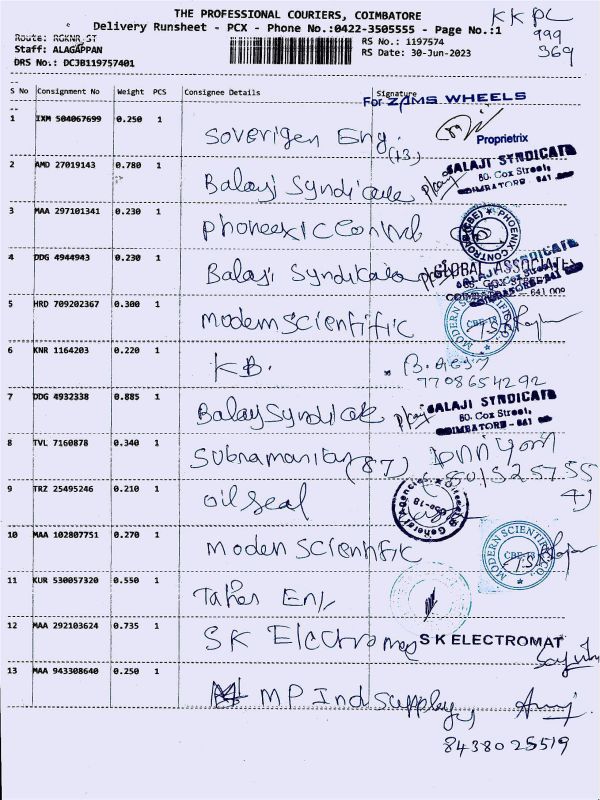 THE PROFESSIONAL COURIERS, COIMBATORE
KKPC
Delivery Runsheet - PCX - Phone No.:0422-3505555 - Page No.:1
999
369
Route: RGKNR_ST
RS No.: 1197574
Staff: ALAGAPPAN
RS Date: 30-Jun-2023
DRS No.: DCJB119757401
S No Consignment No Weight PCS Consignee Details Signature
For ZAMS WHEELS
1 IXM 504067699 0.250 1 Soverigen Eng. (13)
Proprietrix
2 AMD 27019143 0.780 1 Balaji Syndicate
BALAJI SYNDICATE
80. Cox Street,
COIMBATORE - 641
3 MAA 297101341 0.230 1 phoneexic Control
PHOENIX CONTROL (CBE)
4 DDG 4944943 0.230 1 Balaji Syndicate
GLOBAL ASSOCIATES
BALAJI SYNDICATE
5 HRD 709202367 0.300 1 modern scientific
MODERN SCIENTIFIC CO.
CBE-18
6 KNR 1164203 0.220 1 KB.
7708654292
7 DDG 4932338 0.885 1 Balaji Syndicate
BALAJI SYNDICATE
80. Cox Street,
COIMBATORE - 641
8 TVL 7160878 0.340 1 (87)
801525755
41
9 TRZ 25495246 0.210 1 oil seal
General Agencies
10 MAA 102807751 0.270 1 moden Scientific
MODERN SCIENTIFIC CO.
CBE-18
11 KUR 530057320 0.550 1
12 MAA 292103624 0.735 1 SK Electromag
S K ELECTROMAT
13 MAA 943308640 0.250 1 MP Ind Supplay
8438025519